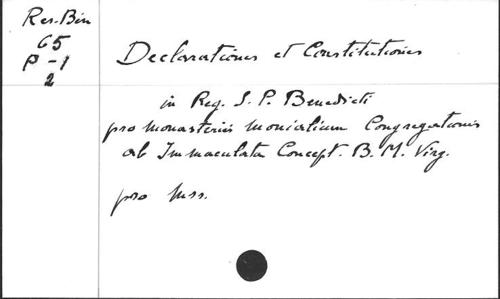 Res. Bin
65
P-1
2
Declarationes et Constitutiones
in Reg. S. P. Benedicti
pro monasteriis monialium Congregationis
ab Immaculata Concept. B. M. Virg.
pro mss.